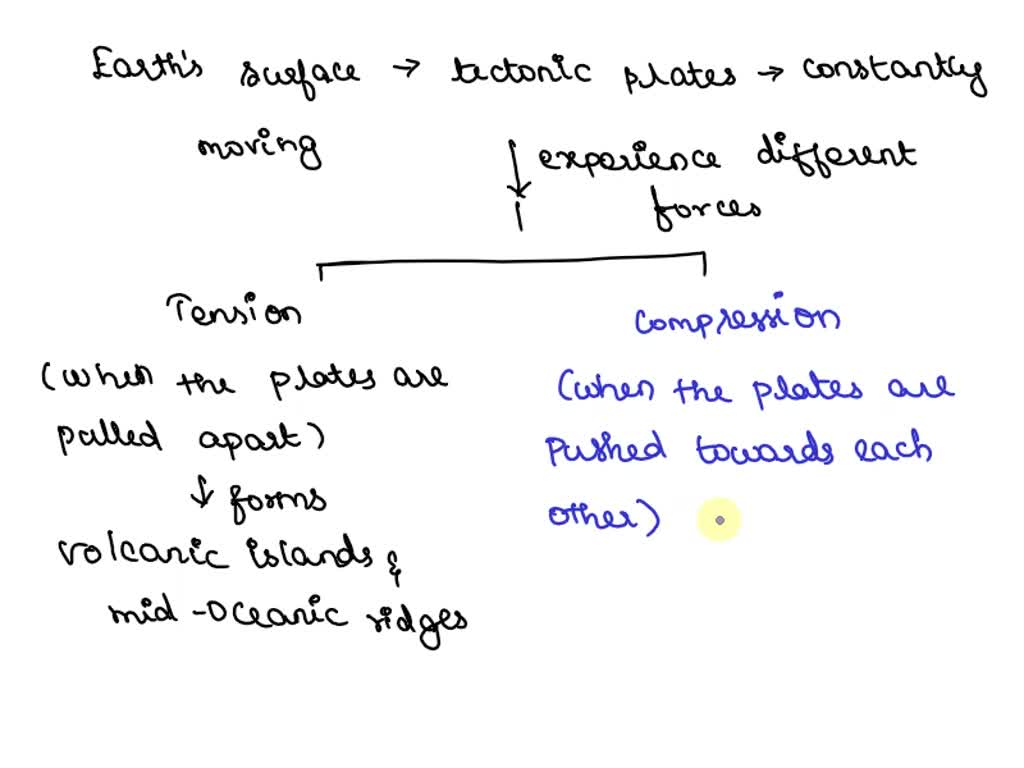 Earth's surface → tectonic plates → constantly
moving
↓ experience different
forces
Tension
(when the plates are
pulled apart)
↓ forms
volcanic islands &
mid-oceanic ridges
compression
(when the plates are
pushed towards each
other)